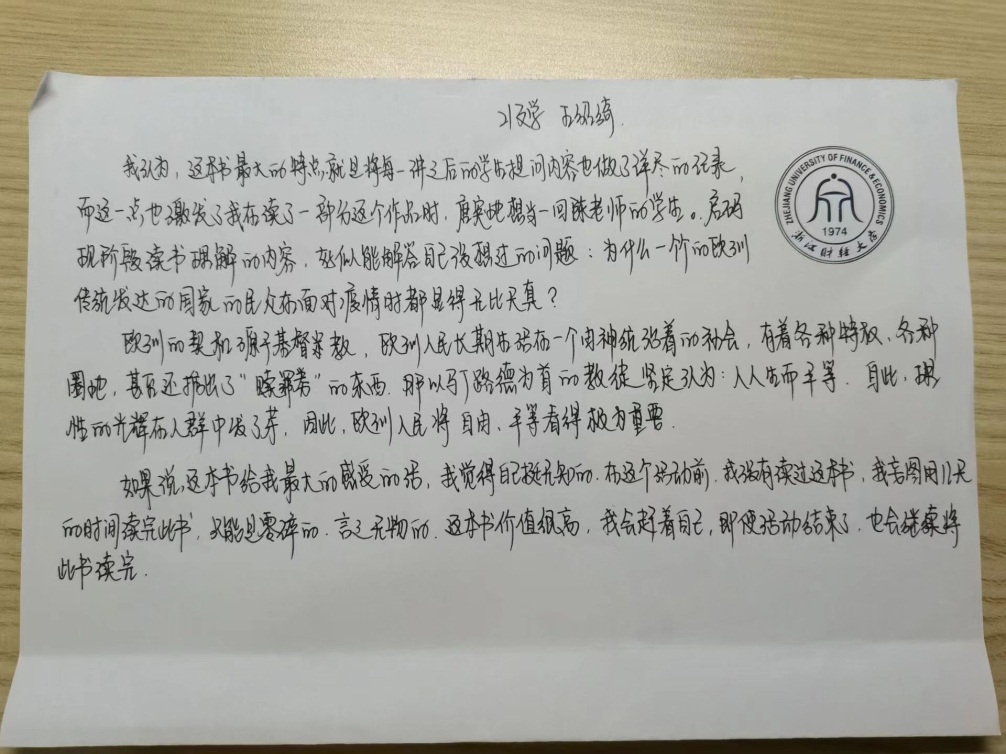 我认为，这本书最大的特点，就是将每一讲之后的学生提问内容也做了详尽的记录，
而这一点也激发了我在读了一部分这个作品时，度实地想当一回陈老师的学生。启码
现阶段读书理解的内容，就能解答自己没想过的问题：为什么一个个的欧洲
传统发达的国家的民众在面对疫情时都显得无比天真？
欧洲的契机源于基督教，欧洲人民长期生活在一个由神统治着的社会，有着各种特权、各种
圈地，甚至还推出了“赎罪券”的东西。那以马丁路德为首的教徒坚定认为：人人生而平等。自此，理
性的光辉在人群中发了芽，因此，欧洲人民将自由、平等看得极为重要。
如果说，这本书给我最大的感受的话，我觉得自己挺无知的。在这个活动前，我没有读过这本书，我试图用12天
的时间读完此书，只能是零碎的、言之无物的。这本书价值很高，我会赶着自己，即便活动结束了，也会继续将
此书读完。
ZHEJIANG UNIVERSITY OF FINANCE & ECONOMICS
1974
浙江财经大学